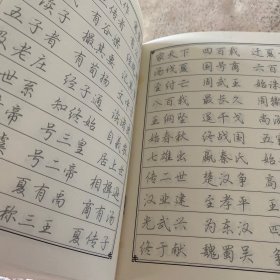 有谷梁
撮其要
五子者 有荀扬
及老庄 经子通
世系 知终始
帝 号三皇 居上世
号二帝 相揖逊
夏有禹 商有汤
称三王 夏传子
家天下 四百载 迁夏
汤伐夏 国号商 六百
至纣亡 周武王 始诛
八百载 最长久 周辙
王纲坠 逞干戈 尚
始春秋 终战国 五
七雄出 嬴秦氏 始
传二世 楚汉争 高
汉业建 至孝平 王
光武兴 为东汉 四
终于献 魏蜀吴